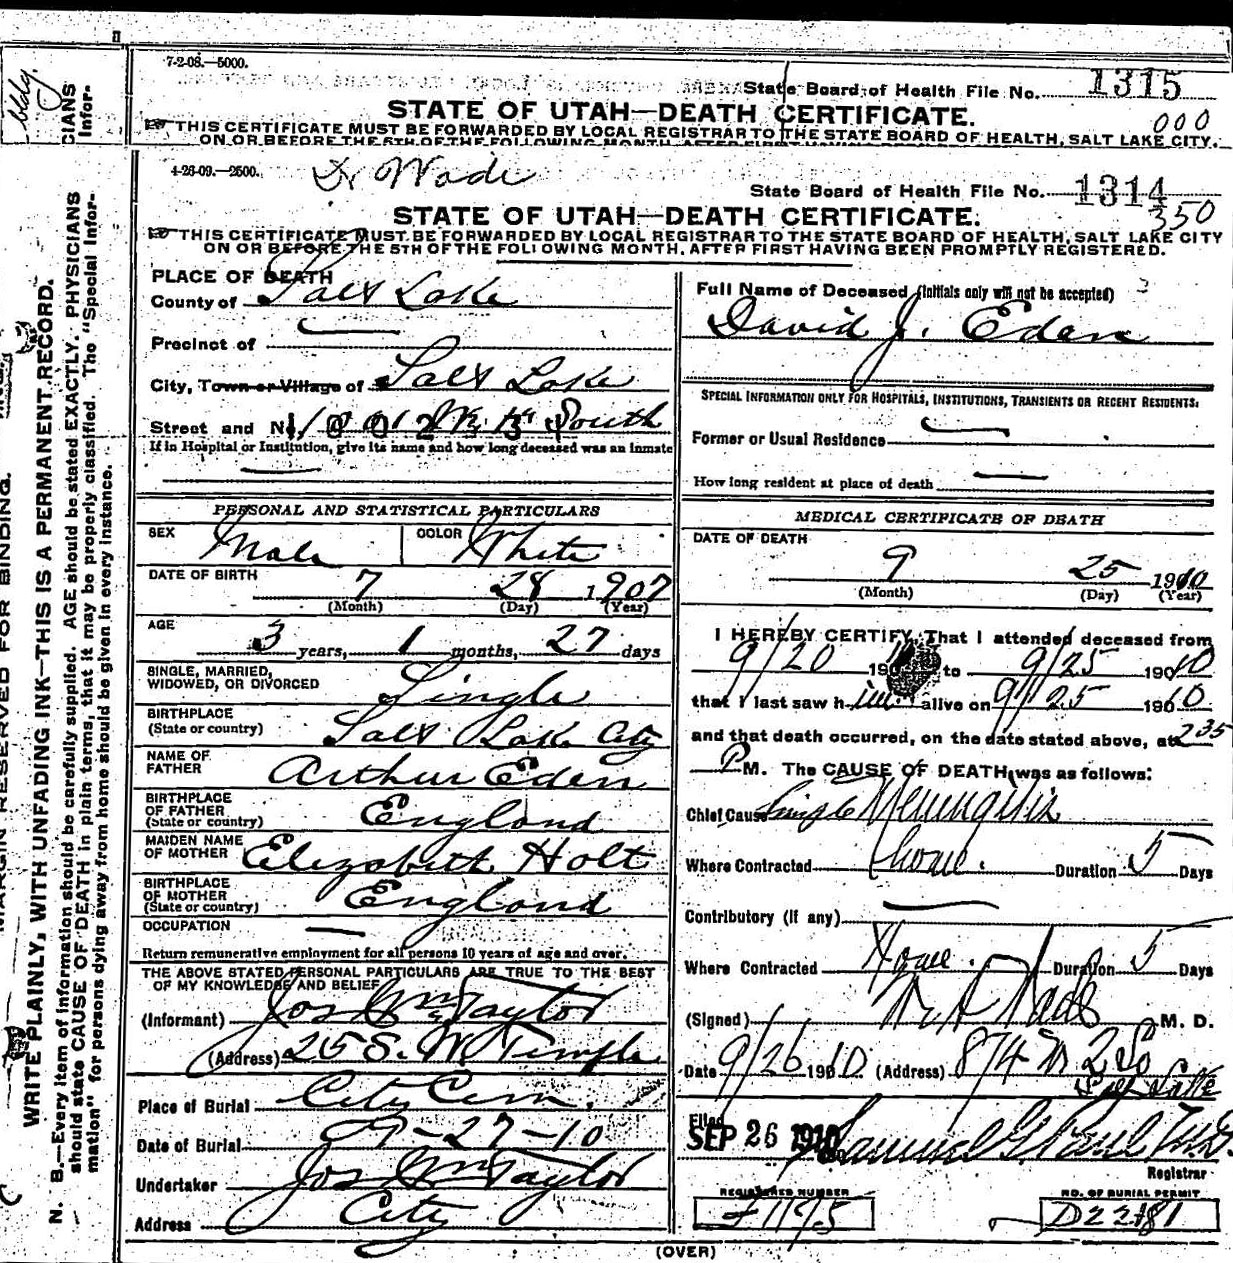 7-2-08.—5000.
State Board of Health File No. 1315
STATE OF UTAH—DEATH CERTIFICATE.
000
THIS CERTIFICATE MUST BE FORWARDED BY LOCAL REGISTRAR TO THE STATE BOARD OF HEALTH, SALT LAKE CITY.
ON OR BEFORE THE 5TH OF THE FOLLOWING MONTH, AFTER FIRST HAVING
bldg.
CIANS
Infor-
4-26-09.—2500. Dr Wade
State Board of Health File No. 1314
STATE OF UTAH—DEATH CERTIFICATE.
350
THIS CERTIFICATE MUST BE FORWARDED BY LOCAL REGISTRAR TO THE STATE BOARD OF HEALTH, SALT LAKE CITY
ON OR BEFORE THE 5TH OF THE FOLLOWING MONTH, AFTER FIRST HAVING BEEN PROMPTLY REGISTERED.
MARGIN RESERVED FOR BINDING.
WRITE PLAINLY, WITH UNFADING INK—THIS IS A PERMANENT RECORD.
N. B.—Every item of information should be carefully supplied. AGE should be stated EXACTLY. PHYSICIANS
should state CAUSE OF DEATH in plain terms, that it may be properly classified. The "Special Infor-
mation" for persons dying away from home should be given in every instance.
PLACE OF DEATH
County of Salt Lake
Precinct of —
City, Town or Village of Salt Lake
Street and No. South
If in Hospital or Institution, give its name and how long deceased was an inmate
—
Full Name of Deceased (Initials only will not be accepted)
David J. Eden
SPECIAL INFORMATION ONLY FOR HOSPITALS, INSTITUTIONS, TRANSIENTS OR RECENT RESIDENTS:
Former or Usual Residence —
How long resident at place of death —
PERSONAL AND STATISTICAL PARTICULARS
SEX Male COLOR White
DATE OF BIRTH 7 28 1907
(Month) (Day) (Year)
AGE 3 years, 1 months, 27 days
SINGLE, MARRIED,
WIDOWED, OR DIVORCED Single
BIRTHPLACE
(State or country) Salt Lake City
NAME OF
FATHER Arthur Eden
BIRTHPLACE
OF FATHER
(State or country) England
MAIDEN NAME
OF MOTHER Elizabeth Holt
BIRTHPLACE
OF MOTHER
(State or country) England
OCCUPATION —
Return remunerative employment for all persons 10 years of age and over.
THE ABOVE STATED PERSONAL PARTICULARS ARE TRUE TO THE BEST
OF MY KNOWLEDGE AND BELIEF
(Informant) Jos Wm Taylor
(Address) 25 S. W. Temple
Place of Burial City Cem.
Date of Burial 9-27-10
Undertaker Jos Wm Taylor
Address City
MEDICAL CERTIFICATE OF DEATH
DATE OF DEATH
9 25 1910
(Month) (Day) (Year)
I HEREBY CERTIFY, That I attended deceased from
9/20 190 to 9/25 19010
that I last saw him alive on 9/25 1910
and that death occurred, on the date stated above, at 235
P M. The CAUSE OF DEATH was as follows:
Chief Cause Simple Meningitis
Where Contracted home. Duration 5 Days
Contributory (if any) —
Where Contracted Home. Duration 5 Days
(Signed) Wade M. D.
Date 9/26 1910 (Address)
Salt Lake
Filed
SEP 26 1910 Samuel G. Paul M.D.
Registrar
REGISTERED NUMBER
NO. OF BURIAL PERMIT
D22481
(OVER)